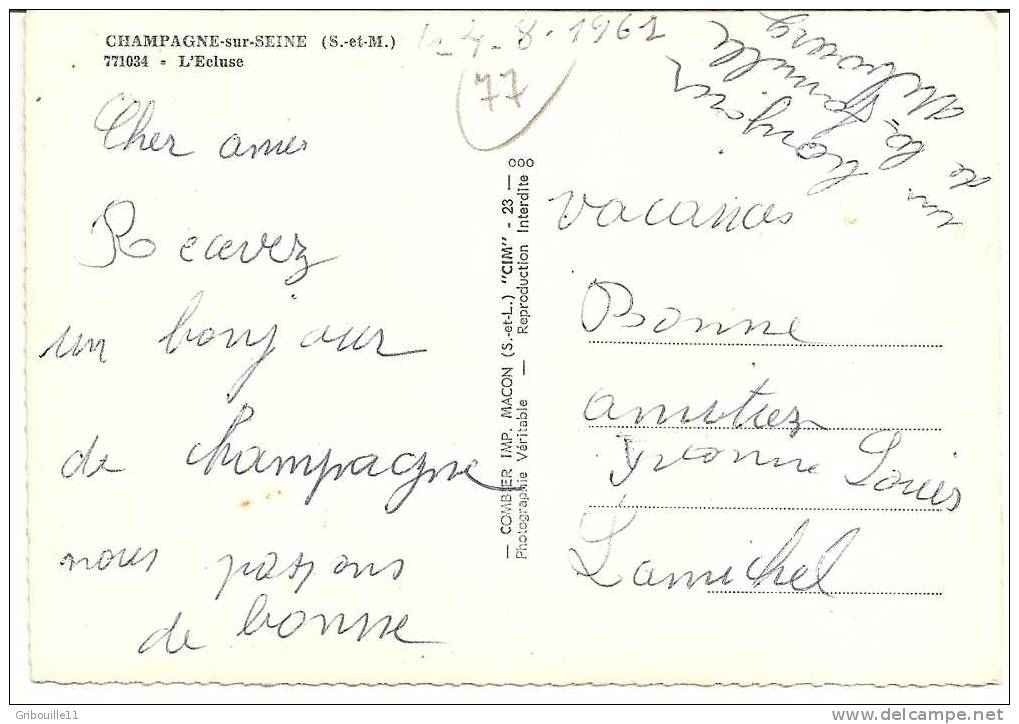 CHAMPAGNE-sur-SEINE (S.-et-M.)
771034 - L'Ecluse
4-8-1961
77
Cher amis
Recevez
un bonjour
de champagne
nous passons
de bonne
— COMBIER IMP. MACON (S.-et-L.) "CIM" - 23 — ooo
Photographie Véritable — Reproduction Interdite
vacances
Bonne
amitiez
Yvonne Louis
Lamichel
un bonjour
de la famille
Gribouille11
www.delcampe.net